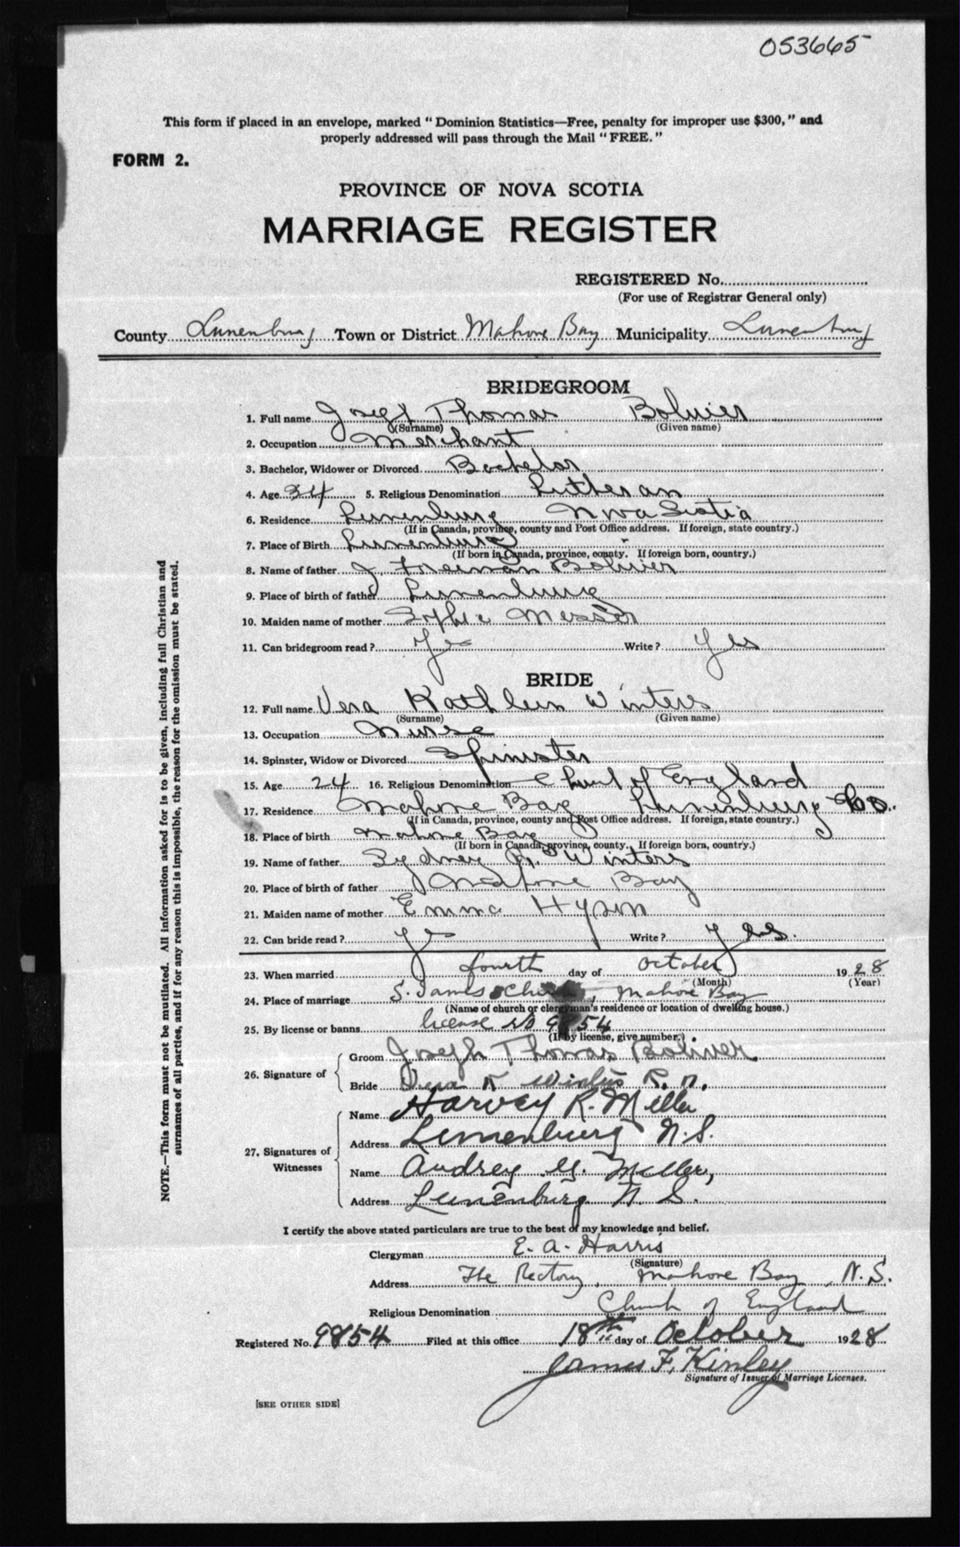 053665
This form if placed in an envelope, marked "Dominion Statistics—Free, penalty for improper use $300," and
properly addressed will pass through the Mail "FREE."
FORM 2.
PROVINCE OF NOVA SCOTIA
MARRIAGE REGISTER
REGISTERED No.
(For use of Registrar General only)
County Lunenburg Town or District Mahone Bay Municipality Lunenburg
BRIDEGROOM
1. Full name Josept Thomas Bolivier
(Surname) (Given name)
2. Occupation Merchant
3. Bachelor, Widower or Divorced Bachelor
4. Age 34 5. Religious Denomination Lutheran
6. Residence Lunenburg Nova Scotia
(If in Canada, province, county and Post Office address. If foreign, state country.)
7. Place of Birth Lunenburg
(If born in Canada, province, county. If foreign born, country.)
8. Name of father J Foreman Bolivier
9. Place of birth of father Lunenburg
10. Maiden name of mother Sophie Messer
11. Can bridegroom read? Yes Write? Yes
BRIDE
12. Full name Vera Kathleen Winters
(Surname) (Given name)
13. Occupation Nurse
14. Spinster, Widow or Divorced Spinster
15. Age 24 16. Religious Denomination Church of England
17. Residence Mahone Bay Lunenburg Co.
(If in Canada, province, county and Post Office address. If foreign, state country.)
18. Place of birth Mahone Bay
(If born in Canada, province, county. If foreign born, country.)
19. Name of father Sydney Winters
20. Place of birth of father Mahone Bay
21. Maiden name of mother Emma Hyson
22. Can bride read? Yes Write? Yes.
23. When married fourth day of October 1928
(Month) (Year)
24. Place of marriage S. James Church, Mahone Bay
(Name of church or clergyman's residence or location of dwelling house.)
25. By license or banns license No 9854
(If by license, give number.)
26. Signature of
Groom Joseph Thomas Bolivier
Bride Vera K Winters R. N.
27. Signatures of Witnesses
Name Harvey R. Miller
Address Lunenburg N.S.
Name Audrey G. Miller,
Address Lunenburg N. S.
I certify the above stated particulars are true to the best of my knowledge and belief.
Clergyman E. A. Harris
(Signature)
Address The Rectory, Mahone Bay, N.S.
Religious Denomination Church of England
Registered No. 9854 Filed at this office 18th day of October 1928
James F. Kinley
Signature of Issuer of Marriage Licenses.
[SEE OTHER SIDE]
NOTE.—This form must not be mutilated. All information asked for is to be given, including full Christian and
surnames of all parties, and if for any reason this is impossible, the reason for the omission must be stated.